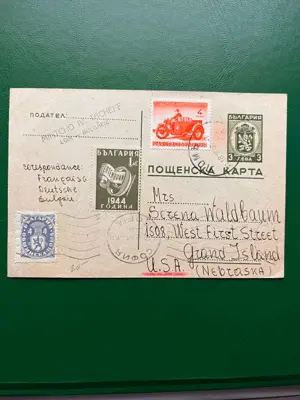 ПОДАТЕЛ:
БЪЛГАРИЯ
1 лв.
1944
ГОДИНА
4
БЪЛГАРИЯ
3 ЛЕВА 3
ПОЩЕНСКА КАРТА
Correspondance:
Française
Deutsche
Bulgare
БЪЛГАРИЯ
4
СОФИЯ
Mrs
Serena Waldbaum
1508, West First Street
Grand Island
U.S.A. (NEBRASKA)